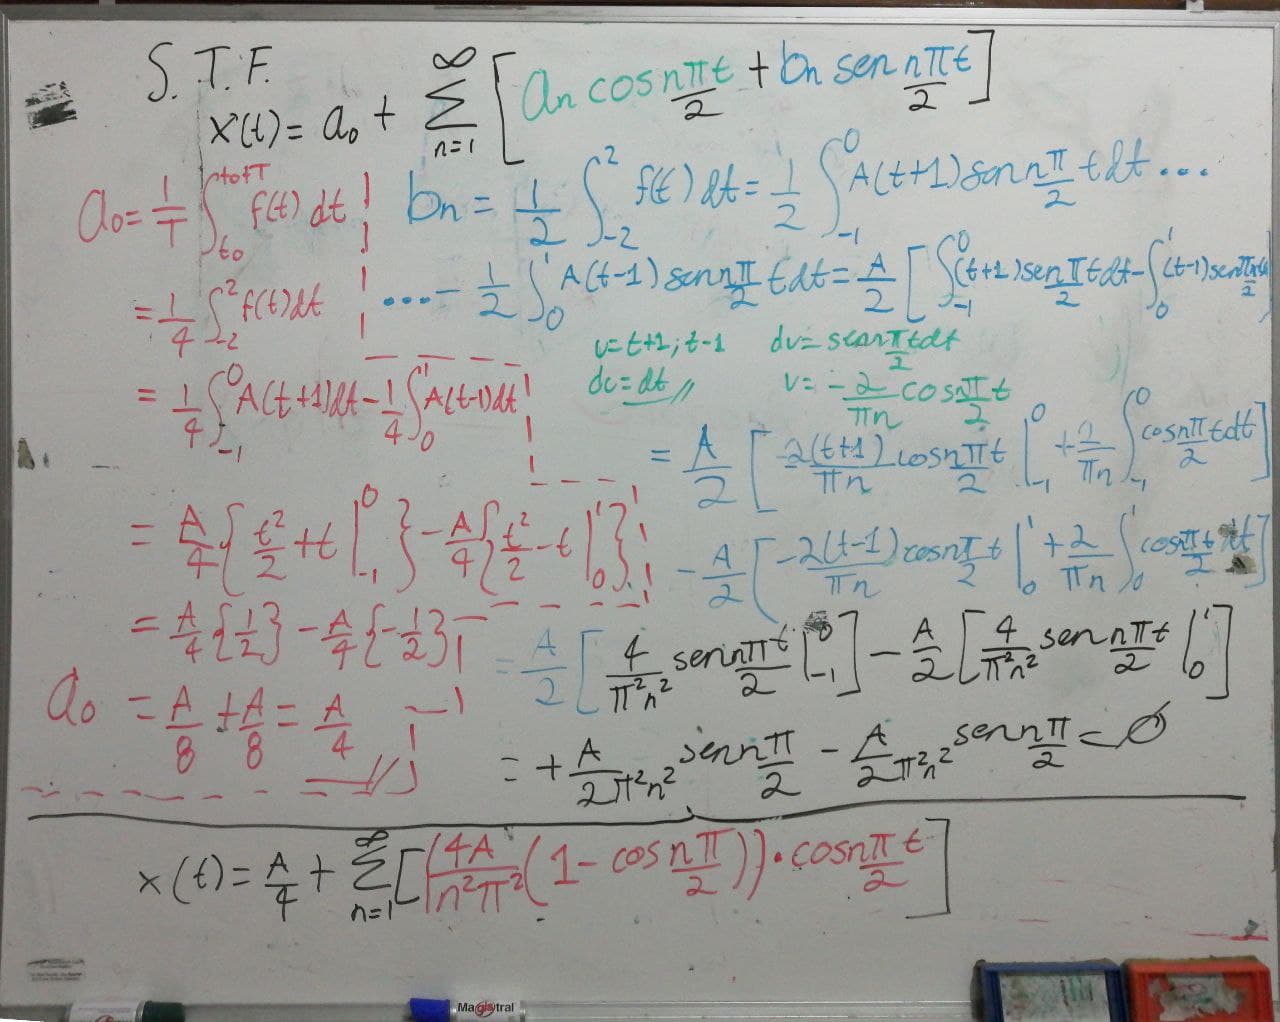 S. T. F.
x(t) = a₀ + ∑_{n=1}^{∞} [ an cos nπt/2 + bn sen nπt/2 ]
a₀ = 1/T ∫_{t₀}^{t₀+T} f(t) dt
= 1/4 ∫_{-2}^{2} f(t) dt
= 1/4 ∫_{-1}^{0} A(t+1)dt - 1/4 ∫_{0}^{1} A(t-1)dt
= A/4 { t²/2 + t |_{-1}^{0} } - A/4 { t²/2 - t |_{0}^{1} }
= A/4 {1/2} - A/4 {-1/2}
a₀ = A/8 + A/8 = A/4 //
bn = 1/2 ∫_{-2}^{2} f(t) dt = 1/2 ∫_{-1}^{0} A(t+1) sen nπ/2 t dt ...
... - 1/2 ∫_{0}^{1} A(t-1) sen nπ/2 t dt = A/2 [ ∫_{-1}^{0} (t+1) sen π/2 t dt - ∫_{0}^{1} (t-1) sen
u = t+1; t-1 dv = sen π/2 t dt
du = dt // v = -2/πn cos nπ/2 t
= A/2 [ -2(t+1)/πn cos nπt/2 |_{-1}^{0} + 2/πn ∫_{-1}^{0} cos nπ/2 t dt ]
- A/2 [ -2(t-1)/πn cos nπ/2 t |_{0}^{1} + 2/πn ∫_{0}^{1} cos nπt/2 dt ]
= A/2 [ 4/π²n² sen nπt/2 |_{-1}^{0} ] - A/2 [ 4/π²n² sen nπt/2 |_{0}^{1} ]
= + A/2π²n² sen nπ/2 - A/2π²n² sen nπ/2 = ∅
x(t) = A/4 + ∑_{n=1}^{∞} [ (4A/n²π² (1 - cos nπ/2)) · cos nπt/2 ]
Magistral